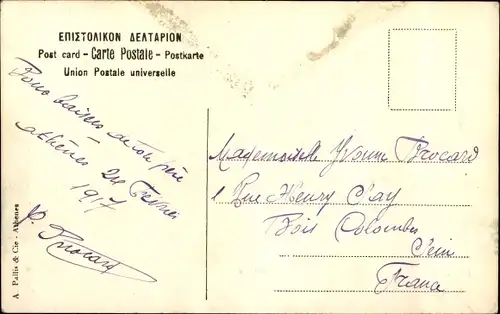 ΕΠΙΣΤΟΛΙΚΟΝ ΔΕΛΤΑΡΙΟΝ
Post card – Carte Postale – Postkarte
Union Postale universelle
Bons baisers de ton père
Athènes Février
1917
Brocard
A Pallis & Cie - Athenes
Mademoiselle Yvonne Brocard
1 Rue Henry Clay
Bois Colombes
Seine
France